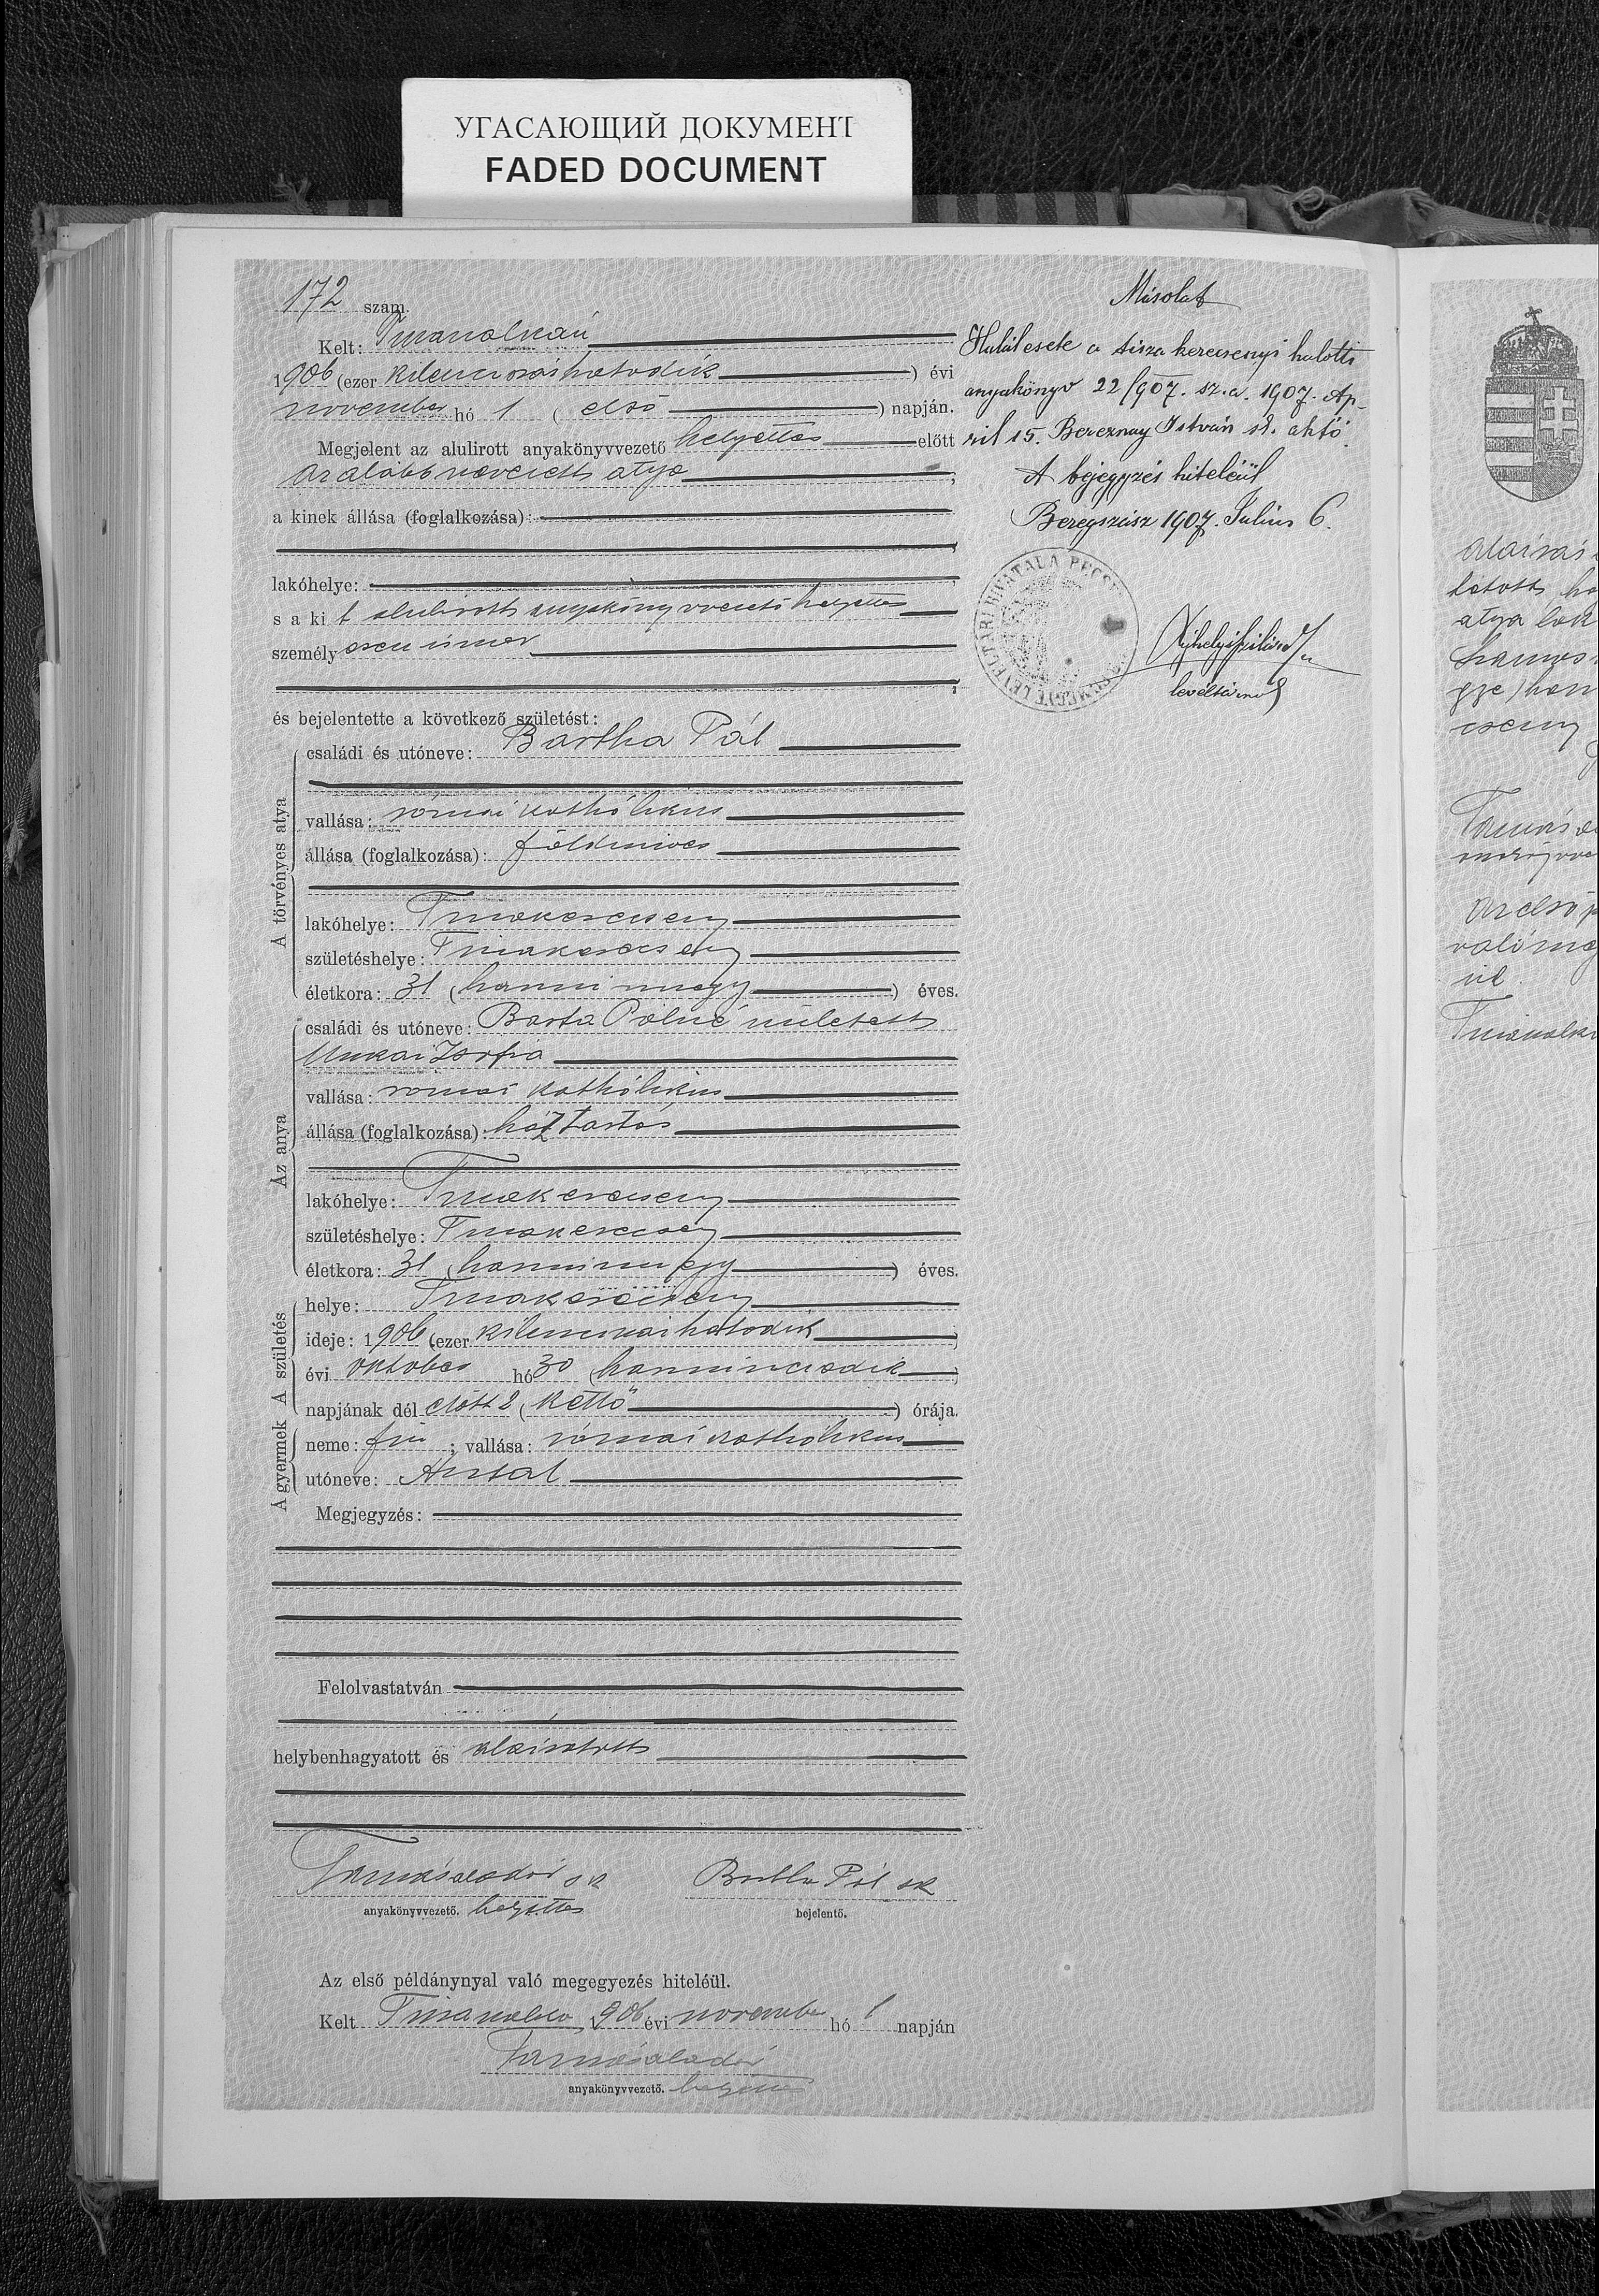 УГАСАЮЩИЙ ДОКУМЕНТ
FADED DOCUMENT
172 szám.
Kelt:
1906 (ezer kilenczszázhatodik) évi
november hó 1 (első) napján.
Megjelent az alulirott anyakönyvvezető helyettes előtt
az alább nevezett atya,
a kinek állása (foglalkozása):
lakóhelye:
s a kit alulirott anyakönyvvezető helyettes
személyesen ismer
és bejelentette a következő születést:
A törvényes atya
családi és utóneve: Bartha Pál
vallása: római katholikus
állása (foglalkozása): földmives
lakóhelye: Tiszakerecseny
születéshelye: Tiszakerecseny
életkora: 31 (harminczegy) éves.
Az anya
családi és utóneve: Barta Pálné született
Zsofia
vallása: római katholikus
állása (foglalkozása): háztartás
lakóhelye: Tiszakerecseny
születéshelye: Tiszakerecseny
életkora: 31 (harminczegy) éves.
A születés
helye: Tiszakerecseny
ideje: 1906 (ezer kilenczszázhatodik)
évi október hó 30 (harminczadik)
napjának dél előtt 2 (kettő) órája.
A gyermek
neme: fiú; vallása: római katholikus
utóneve: Antal
Megjegyzés:
Felolvastatván
helybenhagyatott és aláiratott
Tamás sk
anyakönyvvezető. helyettes
Bartha Pál sk
bejelentő.
Az első példánynyal való megegyezés hiteléül.
Kelt 1906 évi november hó 1 napján
Tamás
anyakönyvvezető. helyettes
Másolat
Halálesete a tisza kerecsenyi halotti
anyakönyv 22/907. sz. a. 1907. Ap-
ril 15. Bereznay István sk. aktó.
A bejegyzés hiteléül
Beregszász 1907. Julius 6.
LEVÉLTÁRI HIVATALA
levéltárnok
aláirás
atya lak
cseny
Tamás
az első p
való meg
ül.